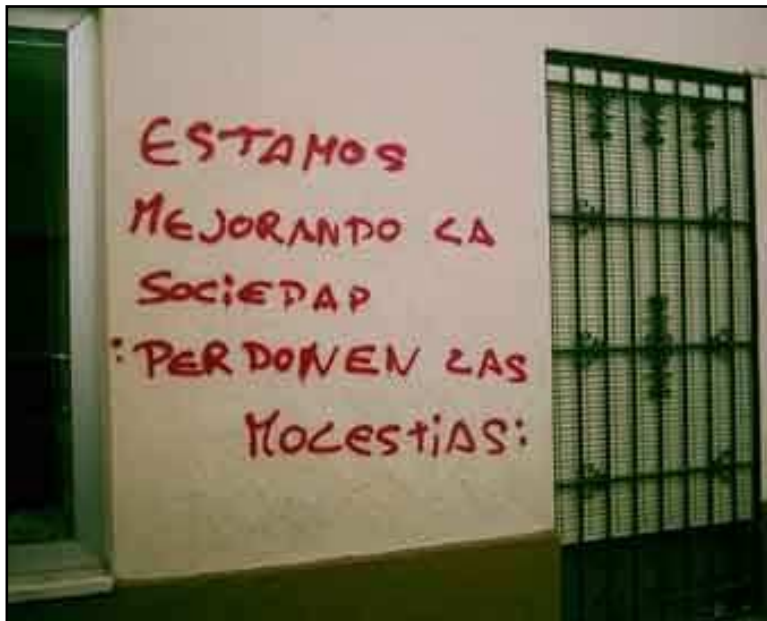 ESTAMOS
MEJORANDO LA
SOCIEDAD
:PERDONEN LAS
MOLESTIAS: